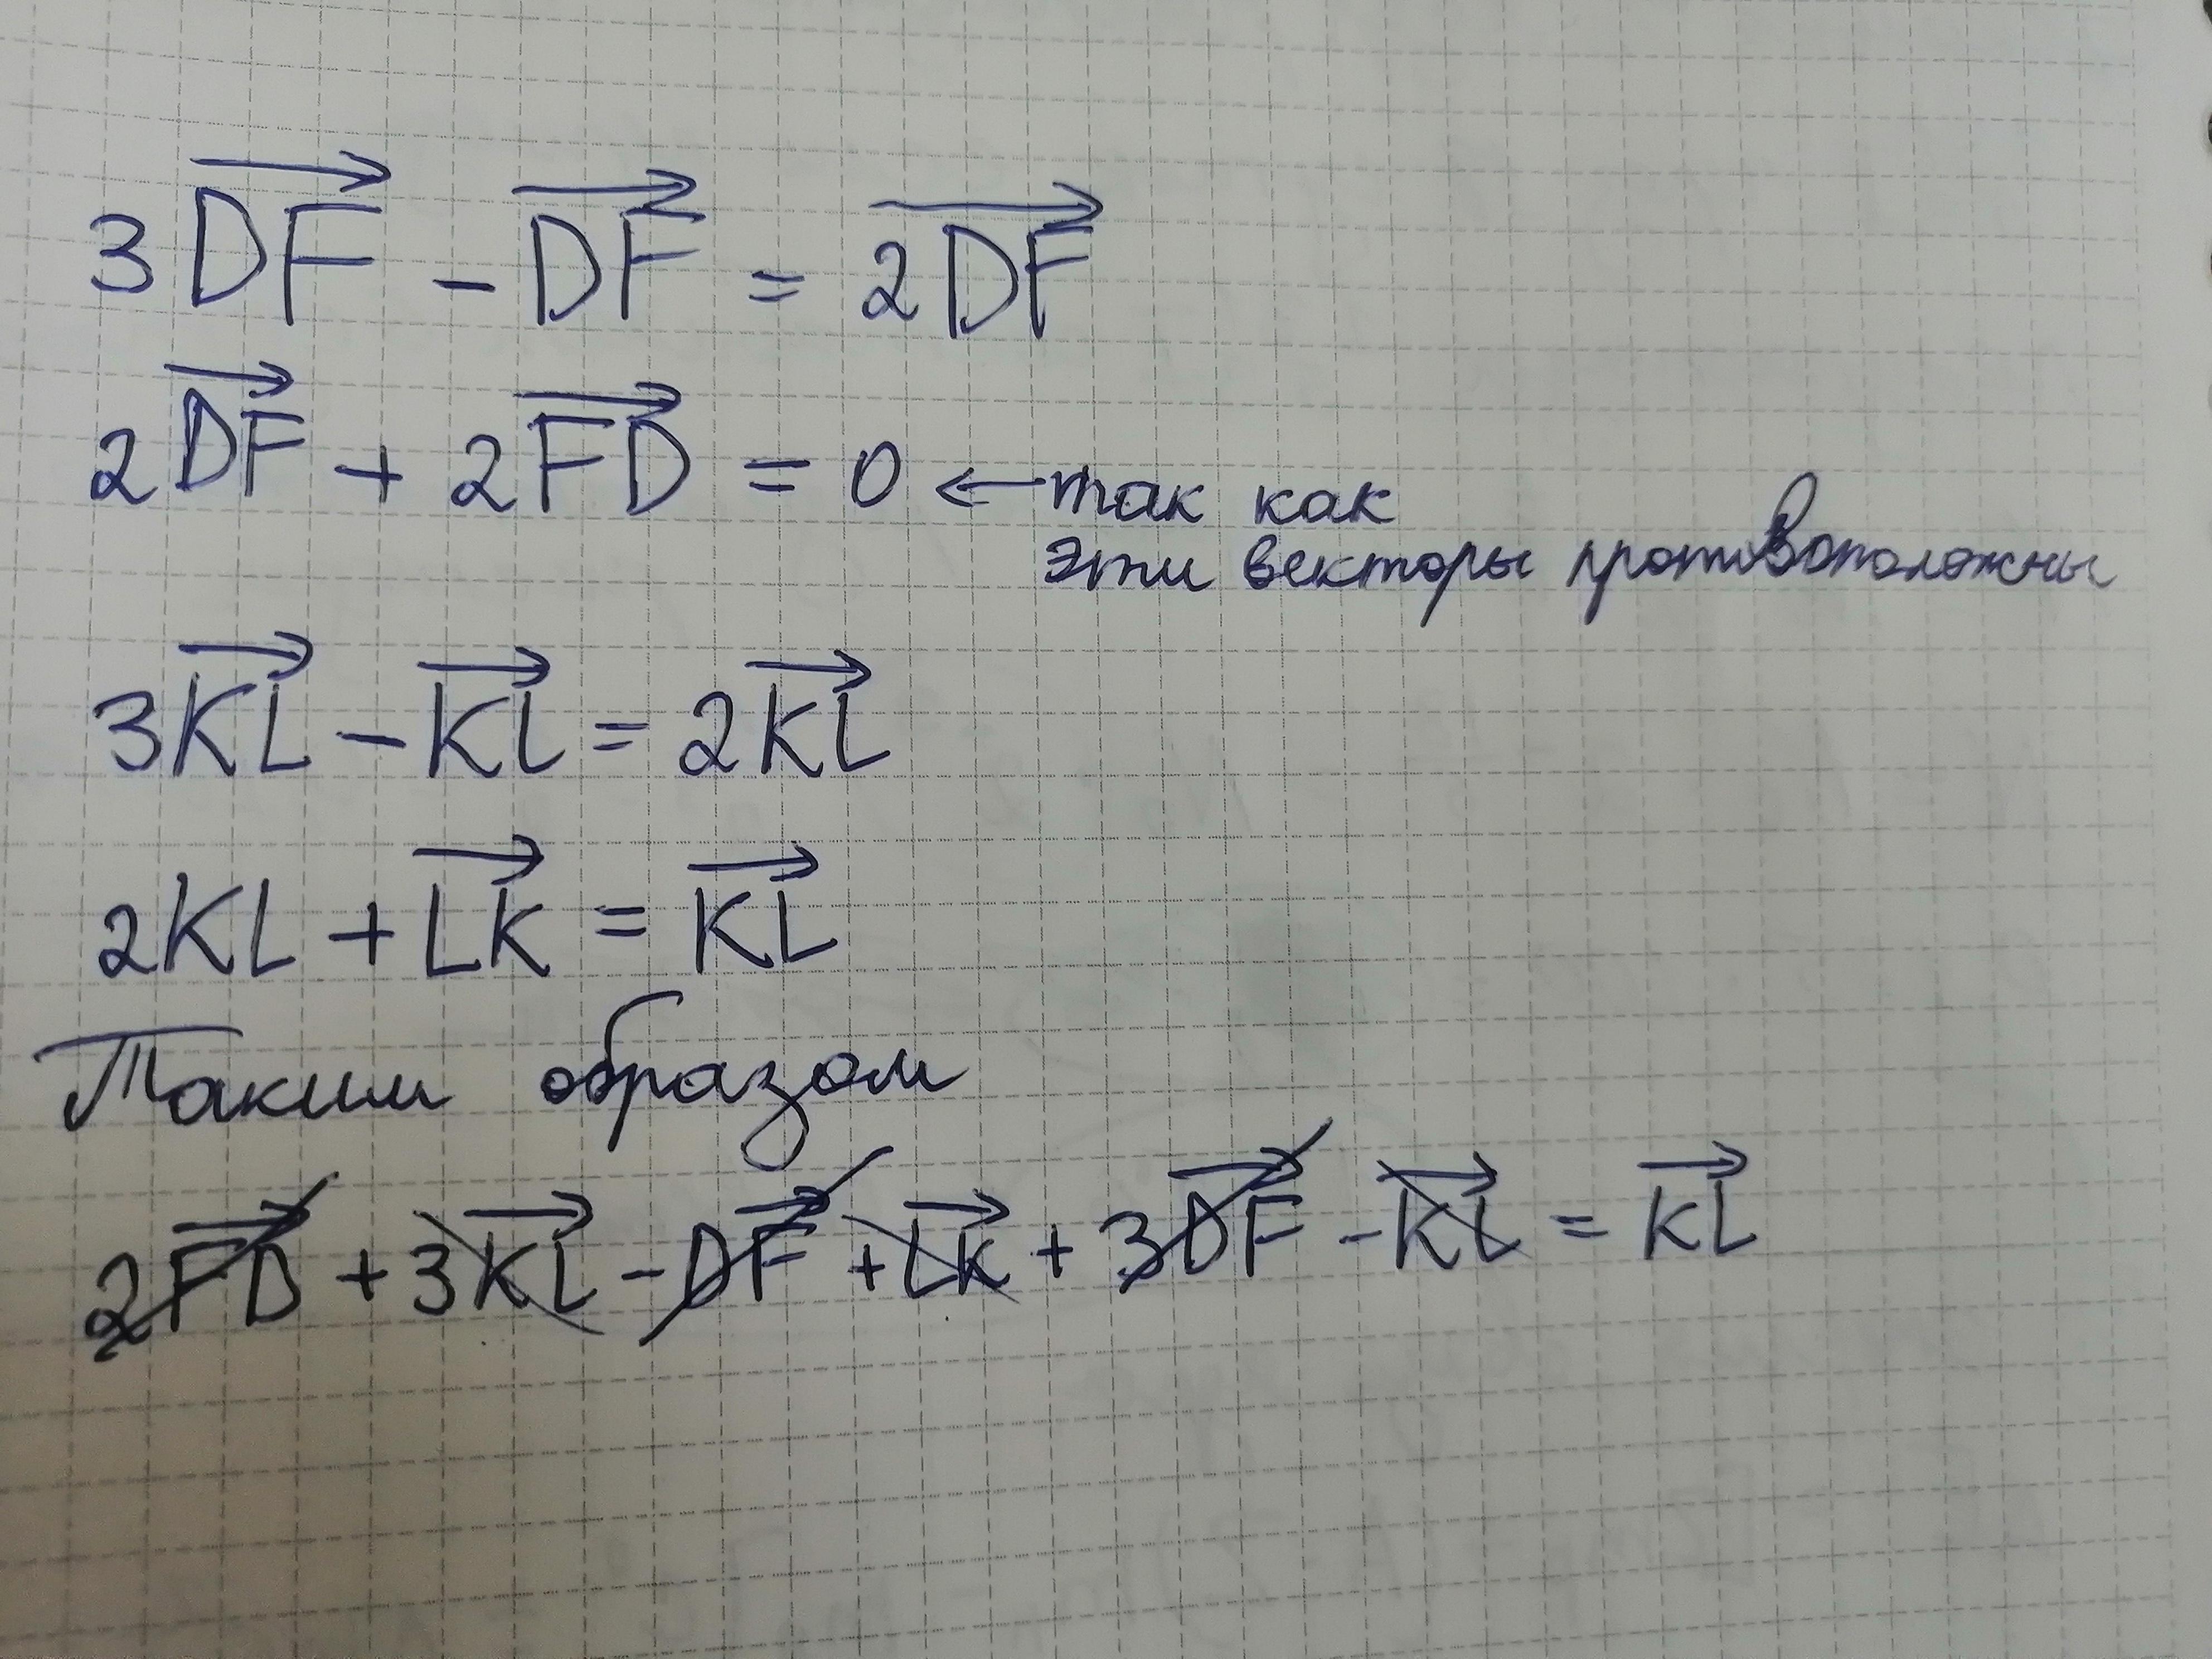 3DF - DF = 2DF
2DF + 2FD = 0 ← так как
эти векторы противоположны
3KL - KL = 2KL
2KL + LK = KL
Таким образом
2FD + 3KL - DF + LK + 3DF - KL = KL